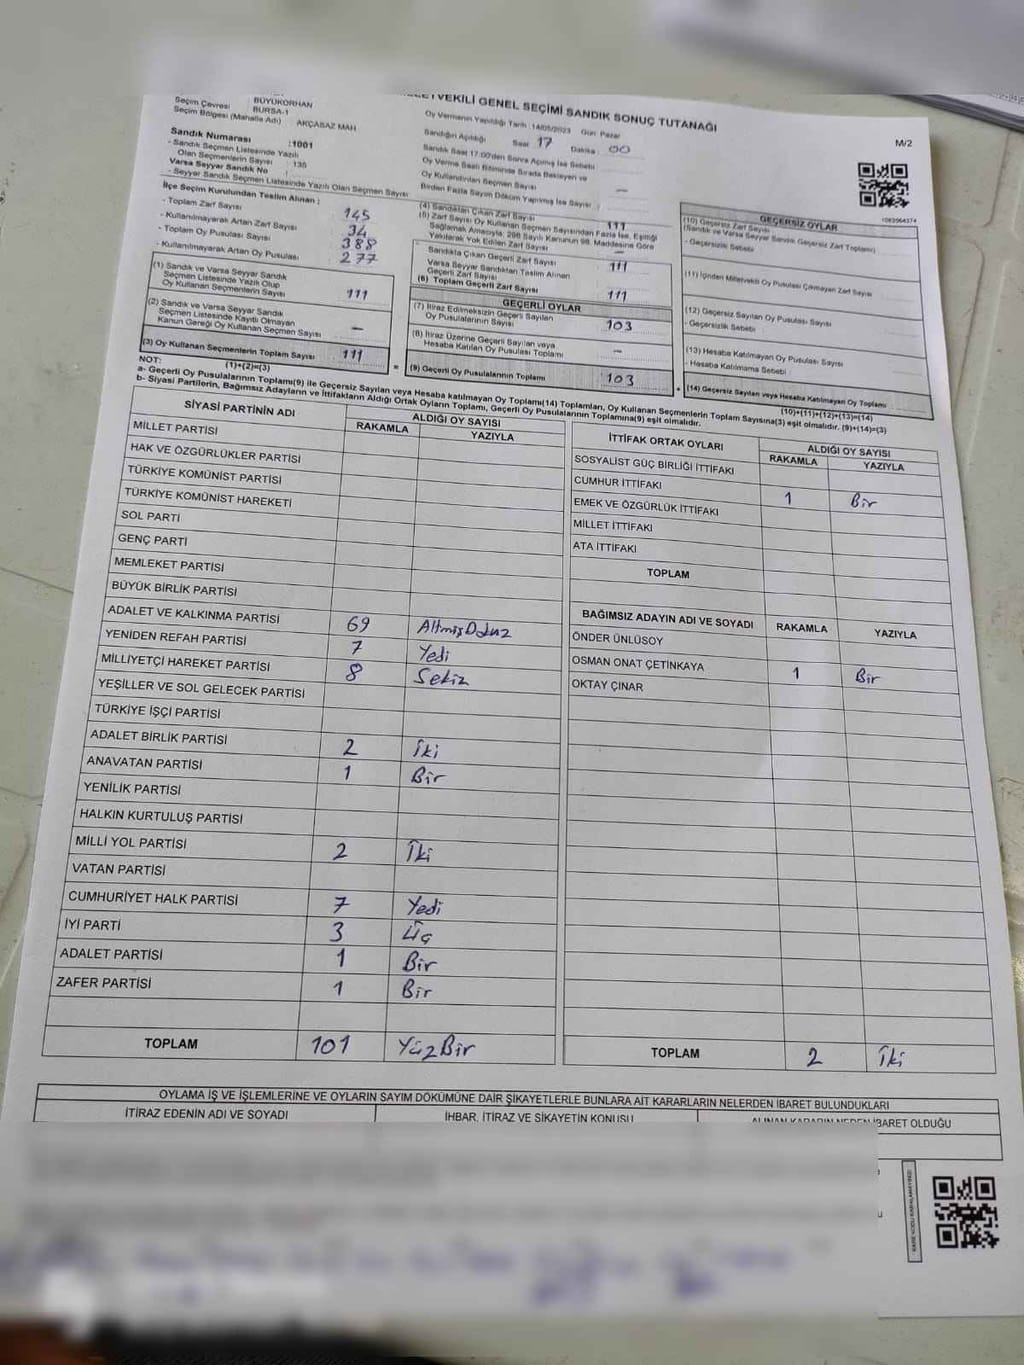 BÜYÜKORHAN
Seçim Çevresi : BURSA-1
Seçim Bölgesi (Mahalle Adı) : AKÇASAZ MAH
VEKİLİ GENEL SEÇİMİ SANDIK SONUÇ TUTANAĞI
M/2
Oy Vermenin Yapıldığı Tarih : 14/05/2023 Gün: Pazar
Sandığın Açıldığı Saat 17 Dakika : 00
Sandık Saat 17:00'den Sonra Açılmış İse Sebebi
Oy Verme Saati Bitiminde Sırada Bekleyen ve
Oy Kullandırılan Seçmen Sayısı –
Birden Fazla Sayım Döküm Yapılmış İse Sayısı :
Sandık Numarası :1001
- Sandık Seçmen Listesinde Yazılı
Olan Seçmenlerin Sayısı : 135
Varsa Seyyar Sandık No
- Seyyar Sandık Seçmen Listesinde Yazılı Olan Seçmen Sayısı
İlçe Seçim Kurulundan Teslim Alınan ;
- Toplam Zarf Sayısı 145
- Kullanılmayarak Artan Zarf Sayısı 34
- Toplam Oy Pusulası Sayısı 388
- Kullanılmayarak Artan Oy Pusulası 277
(1) Sandık ve Varsa Seyyar Sandık
Seçmen Listesinde Yazılı Olup
Oy Kullanan Seçmenlerin Sayısı 111
(2) Sandık ve Varsa Seyyar Sandık
Seçmen Listesinde Kayıtlı Olmayan
Kanun Gereği Oy Kullanan Seçmen Sayısı –
(3) Oy Kullanan Seçmenlerin Toplam Sayısı 111
(1)+(2)=(3)
(4) Sandıktan Çıkan Zarf Sayısı 111
(5) Zarf Sayısı Oy Kullanan Seçmen Sayısından Fazla İse, Eşitliği
Sağlamak Amacıyla; 298 Sayılı Kanunun 98. Maddesine Göre
Yakılarak Yok Edilen Zarf Sayısı –
Sandıkta Çıkan Geçerli Zarf Sayısı 111
Varsa Seyyar Sandıktan Teslim Alınan
Geçerli Zarf Sayısı
(6) Toplam Geçerli Zarf Sayısı 111
GEÇERLİ OYLAR
(7) İtiraz Edilmeksizin Geçerli Sayılan
Oy Pusulalarının Sayısı 103
(8) İtiraz Üzerine Geçerli Sayılan veya
Hesaba Katılan Oy Pusulası Toplamı –
= (9) Geçerli Oy Pusulalarının Toplamı 103
GEÇERSİZ OYLAR
(10) Geçersiz Zarf Sayısı
(Sandık ve Varsa Seyyar Sandık Geçersiz Zarf Toplamı)
- Geçersizlik Sebebi
(11) İçinden Milletvekili Oy Pusulası Çıkmayan Zarf Sayısı
(12) Geçersiz Sayılan Oy Pusulası Sayısı
- Geçersizlik Sebebi
(13) Hesaba Katılmayan Oy Pusulası Sayısı
- Hesaba Katılmama Sebebi
+ (14) Geçersiz Sayılan veya Hesaba Katılmayan Oy Toplamı
(10)+(11)+(12)+(13)=(14)
NOT:
a- Geçerli Oy Pusulalarının Toplamı(9) ile Geçersiz Sayılan veya Hesaba katılmayan Oy Toplamı(14) Toplamları, Oy Kullanan Seçmenlerin Toplam Sayısına(3) eşit olmalıdır. (9)+(14)=(3)
b- Siyasi Partilerin, Bağımsız Adayların ve İttifakların Aldığı Ortak Oyların Toplamı, Geçerli Oy Pusulalarının Toplamına(9) eşit olmalıdır.
SİYASİ PARTİNİN ADI ALDIĞI OY SAYISI
RAKAMLA YAZIYLA
MİLLET PARTİSİ
HAK VE ÖZGÜRLÜKLER PARTİSİ
TÜRKİYE KOMÜNİST PARTİSİ
TÜRKİYE KOMÜNİST HAREKETİ
SOL PARTİ
GENÇ PARTİ
MEMLEKET PARTİSİ
BÜYÜK BİRLİK PARTİSİ
ADALET VE KALKINMA PARTİSİ 69 AltmışDokuz
YENİDEN REFAH PARTİSİ 7 Yedi
MİLLİYETÇİ HAREKET PARTİSİ 8 Sekiz
YEŞİLLER VE SOL GELECEK PARTİSİ
TÜRKİYE İŞÇİ PARTİSİ
ADALET BİRLİK PARTİSİ 2 İki
ANAVATAN PARTİSİ 1 Bir
YENİLİK PARTİSİ
HALKIN KURTULUŞ PARTİSİ
MİLLİ YOL PARTİSİ 2 İki
VATAN PARTİSİ
CUMHURİYET HALK PARTİSİ 7 Yedi
İYİ PARTİ 3 Üç
ADALET PARTİSİ 1 Bir
ZAFER PARTİSİ 1 Bir
TOPLAM 101 YüzBir
İTTİFAK ORTAK OYLARI ALDIĞI OY SAYISI
RAKAMLA YAZIYLA
SOSYALİST GÜÇ BİRLİĞİ İTTİFAKI
CUMHUR İTTİFAKI 1 Bir
EMEK VE ÖZGÜRLÜK İTTİFAKI
MİLLET İTTİFAKI
ATA İTTİFAKI
TOPLAM
BAĞIMSIZ ADAYIN ADI VE SOYADI RAKAMLA YAZIYLA
ÖNDER ÜNLÜSOY
OSMAN ONAT ÇETİNKAYA 1 Bir
OKTAY ÇINAR
TOPLAM 2 İki
OYLAMA İŞ VE İŞLEMLERİNE VE OYLARIN SAYIM DÖKÜMÜNE DAİR ŞİKAYETLERLE BUNLARA AİT KARARLARIN NELERDEN İBARET BULUNDUKLARI
İTİRAZ EDENİN ADI VE SOYADI İHBAR, İTİRAZ VE ŞİKAYETİN KONUSU ALINAN KARARIN NEDEN İBARET OLDUĞU